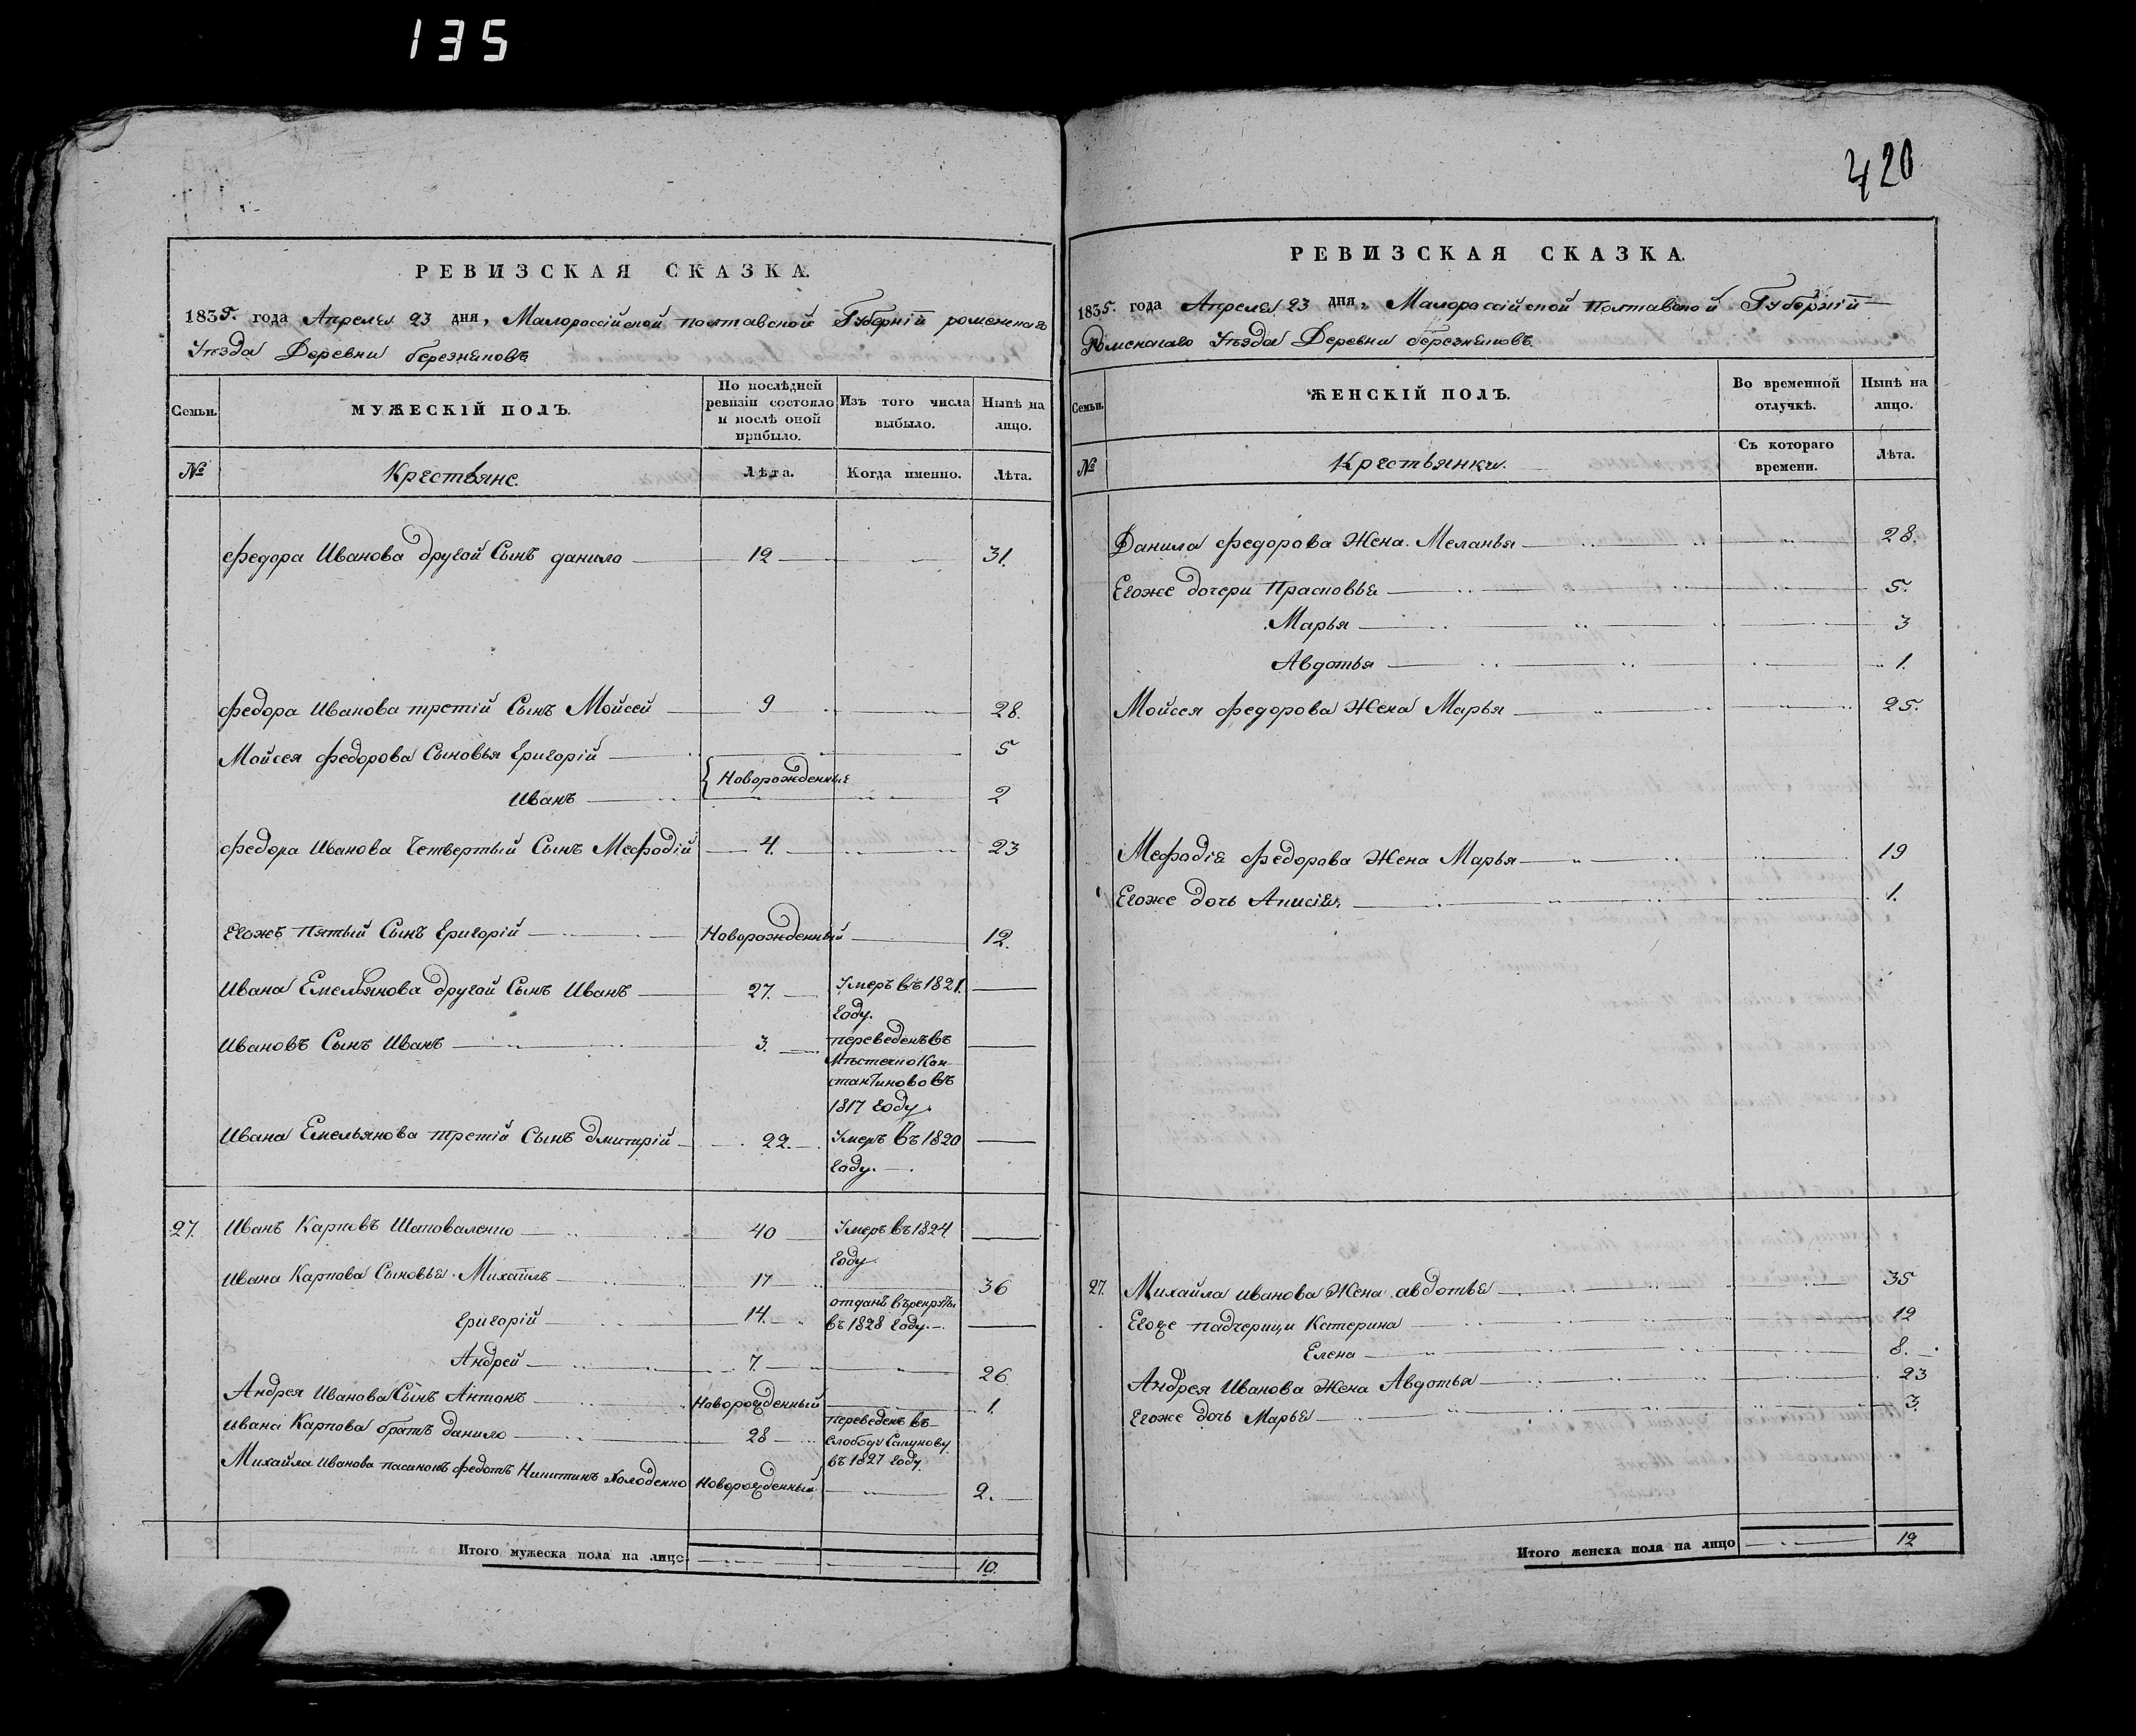 135
420
РЕВИЗСКАЯ СКАЗКА.
1835. года Апреля 23 дня, Малороссійской полтавской Губерніи роменскаго
Уѣзда Деревни березняковъ
Семьи. МУЖЕСКІЙ ПОЛЪ. По послѣдней ревизіи состояло и послѣ оной прибыло. Изъ того числа выбыло. Нынѣ на лицо.
№ Крестьяне. Лѣта. Когда именно. Лѣта.
федора Иванова другой Сынъ данило 12 31.
федора Иванова третій Сынъ Мойсей 9 28.
Мойсея федорова Сыновья Григорій 5
Новорожденные
Иванъ 2
федора Иванова Четвертый Сынъ Мефодій 4. 23
Егожъ пятый Сынъ Григорій Новорожденный 12.
Ивана Емельянова другой Сынъ Иванъ 27. Умеръ въ 1821.
году.
Ивановъ Сынъ Иванъ 3. переведенъ въ
Мѣстечко Кон-
стантиново въ
1817 году.
Ивана Емельянова третій Сынъ Дмитрій 22. Умеръ въ 1820
году.
27. Иванъ Карповъ Шаповаленко 40 Умеръ въ 1824
году.
Ивана Карпова Сыновья Михайлъ 17 36
Григорій 14. отданъ въ рекруты
въ 1828 году.
Андрей 7. 26
Андрея Иванова Сынъ Антонъ Новорожденный 1.
Ивана Карпова братъ данило 28 переведенъ въ
Слободу Сакунову
въ 1827 году.
Михайла Иванова пасинокъ федотъ Никитинъ Холоденко Новорожденный 2.
Итого мужеска пола на лицо. 10.
РЕВИЗСКАЯ СКАЗКА.
1835. года Апреля 23 дня, Малороссійской Полтавской Губерніи
Роменскаго Уѣзда Деревни березняковъ.
Семьи. ЖЕНСКІЙ ПОЛЪ. Во временной отлучкѣ. Нынѣ на лицо.
№ Крестьянки. Съ котораго времени. Лѣта.
Данила федорова Жена. Меланья 28.
Егоже дочери Прасковья 5.
Марья 3
Авдотья 1.
Мойсея федорова Жена Марья 25.
Мефодія федорова Жена Марья 19
Егоже дочь Анисія 1.
27. Михайла иванова Жена авдотья 35
Егоже падчерици Катерина 12
Елена 8.
Андрея Иванова Жена Авдотья 23
Егоже дочь Марья 3.
Итого женска пола на лицо 12